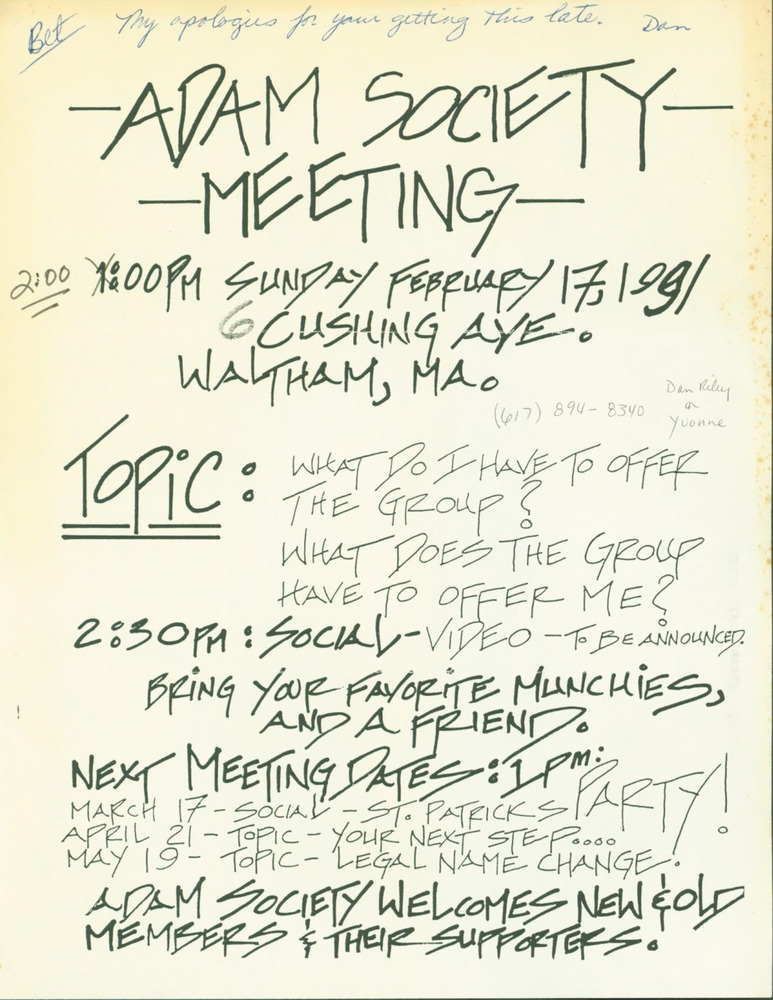 Bet My apologies for your getting this late. Dan
—ADAM SOCIETY—
—MEETING—
2:00 1:00PM SUNDAY FEBRUARY 17, 1991
6 CUSHING AVE.
WALTHAM, MA.
(617) 894-8340 Dan Riley
or
Yvonne
TOPIC: WHAT DO I HAVE TO OFFER
THE GROUP?
WHAT DOES THE GROUP
HAVE TO OFFER ME?
2:30PM: SOCIAL-VIDEO-TO BE ANNOUNCED.
BRING YOUR FAVORITE MUNCHIES,
AND A FRIEND.
NEXT MEETING DATES: 1PM:
MARCH 17-SOCIAL-ST. PATRICKS PARTY!
APRIL 21-TOPIC-YOUR NEXT STEP....
MAY 19-TOPIC-LEGAL NAME CHANGE.
ADAM SOCIETY WELCOMES NEW & OLD
MEMBERS & THEIR SUPPORTERS.